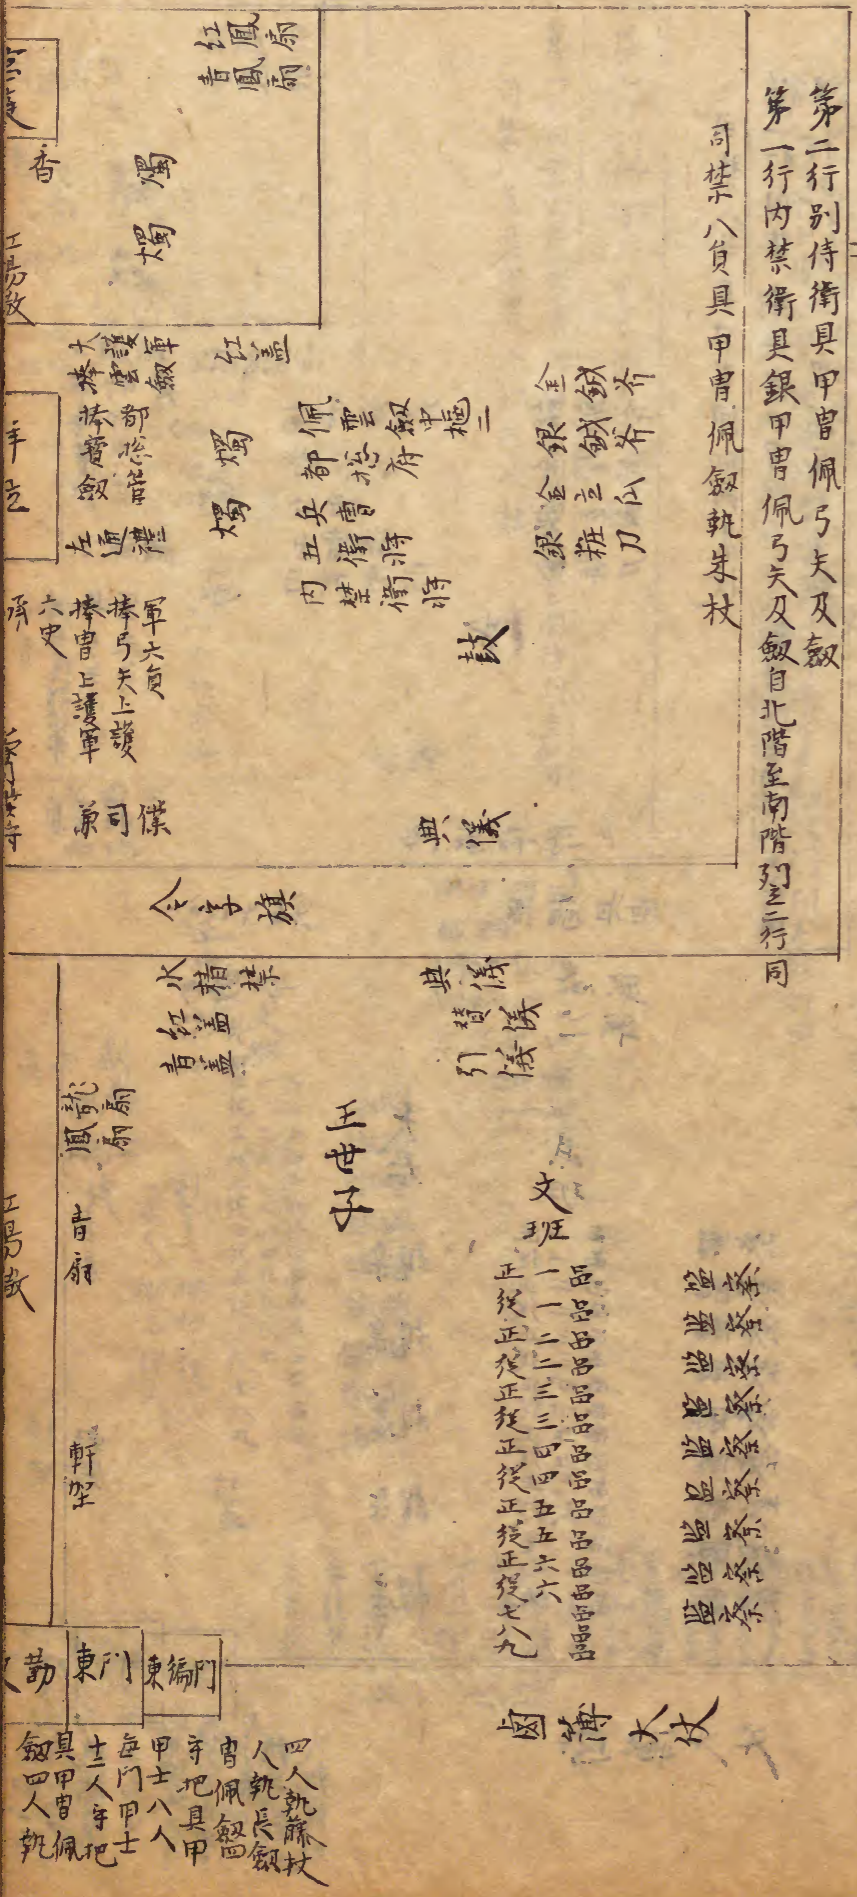 第二行別侍衛具甲冑佩弓矢及劔
第一行內禁衛具銀甲冑佩弓矢及劔自北階至南階列立二行同
司禁八負具甲冑佩劔執朱杖
紅鳳扇
青鳳扇
香
燭
燭
紅盖
大護軍
捧雲劔
都摠管
捧寶劔
左通禮
燭
燭
佩雲劔中樞二
都摠府
兵曹
五衛將
內禁衛將
金鉞斧
銀鉞斧
金立瓜
銀粧刀
鼓
軍六負
捧弓矢上護
捧冑上護軍
六史
司僕
典儀
令字旗
水精禁
紅盖
青盖
典儀
贊儀
引儀
龍扇
鳳扇
青扇
王世子
軒架
文班
正一品
從一品
正二品
從二品
正三品
從三品
正四品
從四品
正五品
從五品
正六品
從六品
七品
八品
九品
監察
監察
監察
監察
監察
監察
監察
監察
監察
東偏門
東門
勤
鹵簿大仗
四人執藤杖
人執長劔
冑佩劔四
守把具甲
甲士八人
每門甲士
十二人守把
具甲冑佩
劔四人執